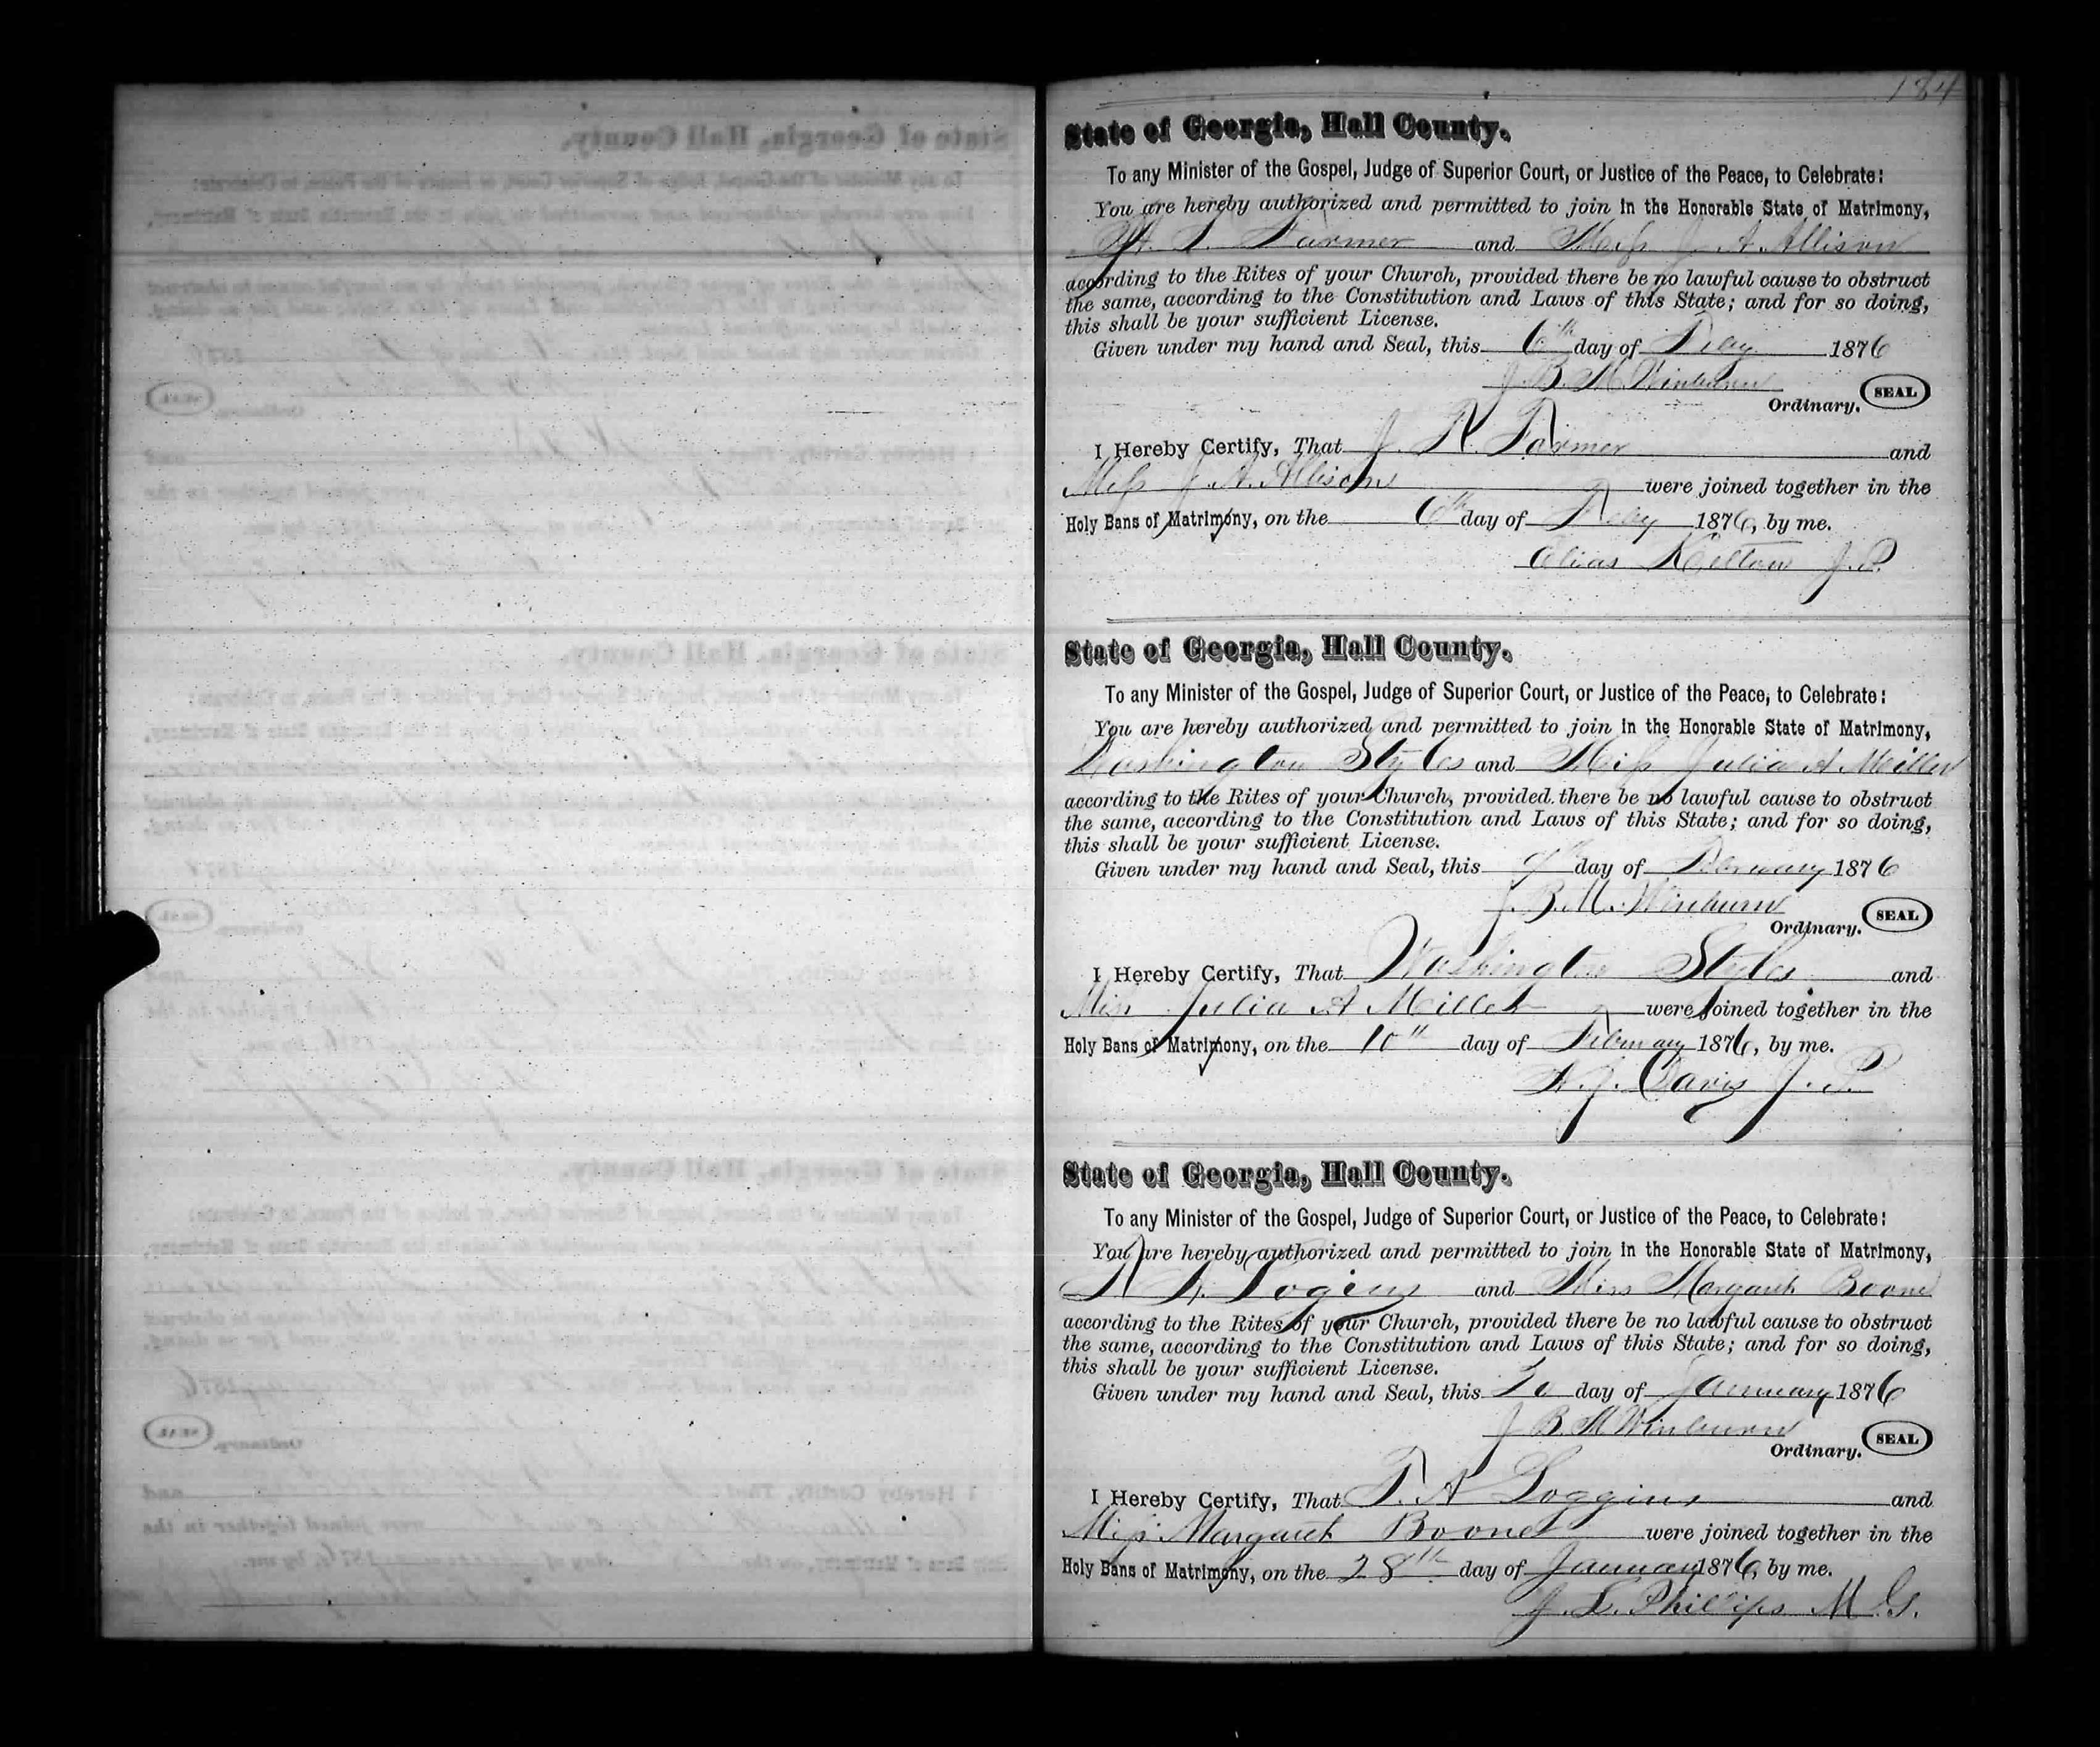 184
State of Georgia, Hall County.
To any Minister of the Gospel, Judge of Superior Court, or Justice of the Peace, to Celebrate:
You are hereby authorized and permitted to join in the Honorable State of Matrimony,
Farmer and Miss J A Allison
according to the Rites of your Church, provided there be no lawful cause to obstruct
the same, according to the Constitution and Laws of this State; and for so doing,
this shall be your sufficient License.
Given under my hand and Seal, this 6th day of 1876
J. B. M. Winburn
Ordinary. SEAL
I Hereby Certify, That Farmer and
Miss J. A. Allison were joined together in the
Holy Bans of Matrimony, on the 6th day of 1876, by me.
Kelton J. P.
State of Georgia, Hall County.
To any Minister of the Gospel, Judge of Superior Court, or Justice of the Peace, to Celebrate:
You are hereby authorized and permitted to join in the Honorable State of Matrimony,
Washington Styles and Miss Julia A Miller
according to the Rites of your Church, provided there be no lawful cause to obstruct
the same, according to the Constitution and Laws of this State; and for so doing,
this shall be your sufficient License.
Given under my hand and Seal, this 9th day of February 1876
J. B. M. Winburn
Ordinary. SEAL
I Hereby Certify, That Washington Styles and
Miss Julia A Miller were joined together in the
Holy Bans of Matrimony, on the 10th day of February 1876, by me.
Davis J. P.
State of Georgia, Hall County.
To any Minister of the Gospel, Judge of Superior Court, or Justice of the Peace, to Celebrate:
You are hereby authorized and permitted to join in the Honorable State of Matrimony,
Logins and Miss Margaret Boone
according to the Rites of your Church, provided there be no lawful cause to obstruct
the same, according to the Constitution and Laws of this State; and for so doing,
this shall be your sufficient License.
Given under my hand and Seal, this 20 day of January 1876
J B M Winburn
Ordinary. SEAL
I Hereby Certify, That T. A Loggins and
Miss Margaret Boone were joined together in the
Holy Bans of Matrimony, on the 28th day of January 1876, by me.
J. L. Phillips M. G.